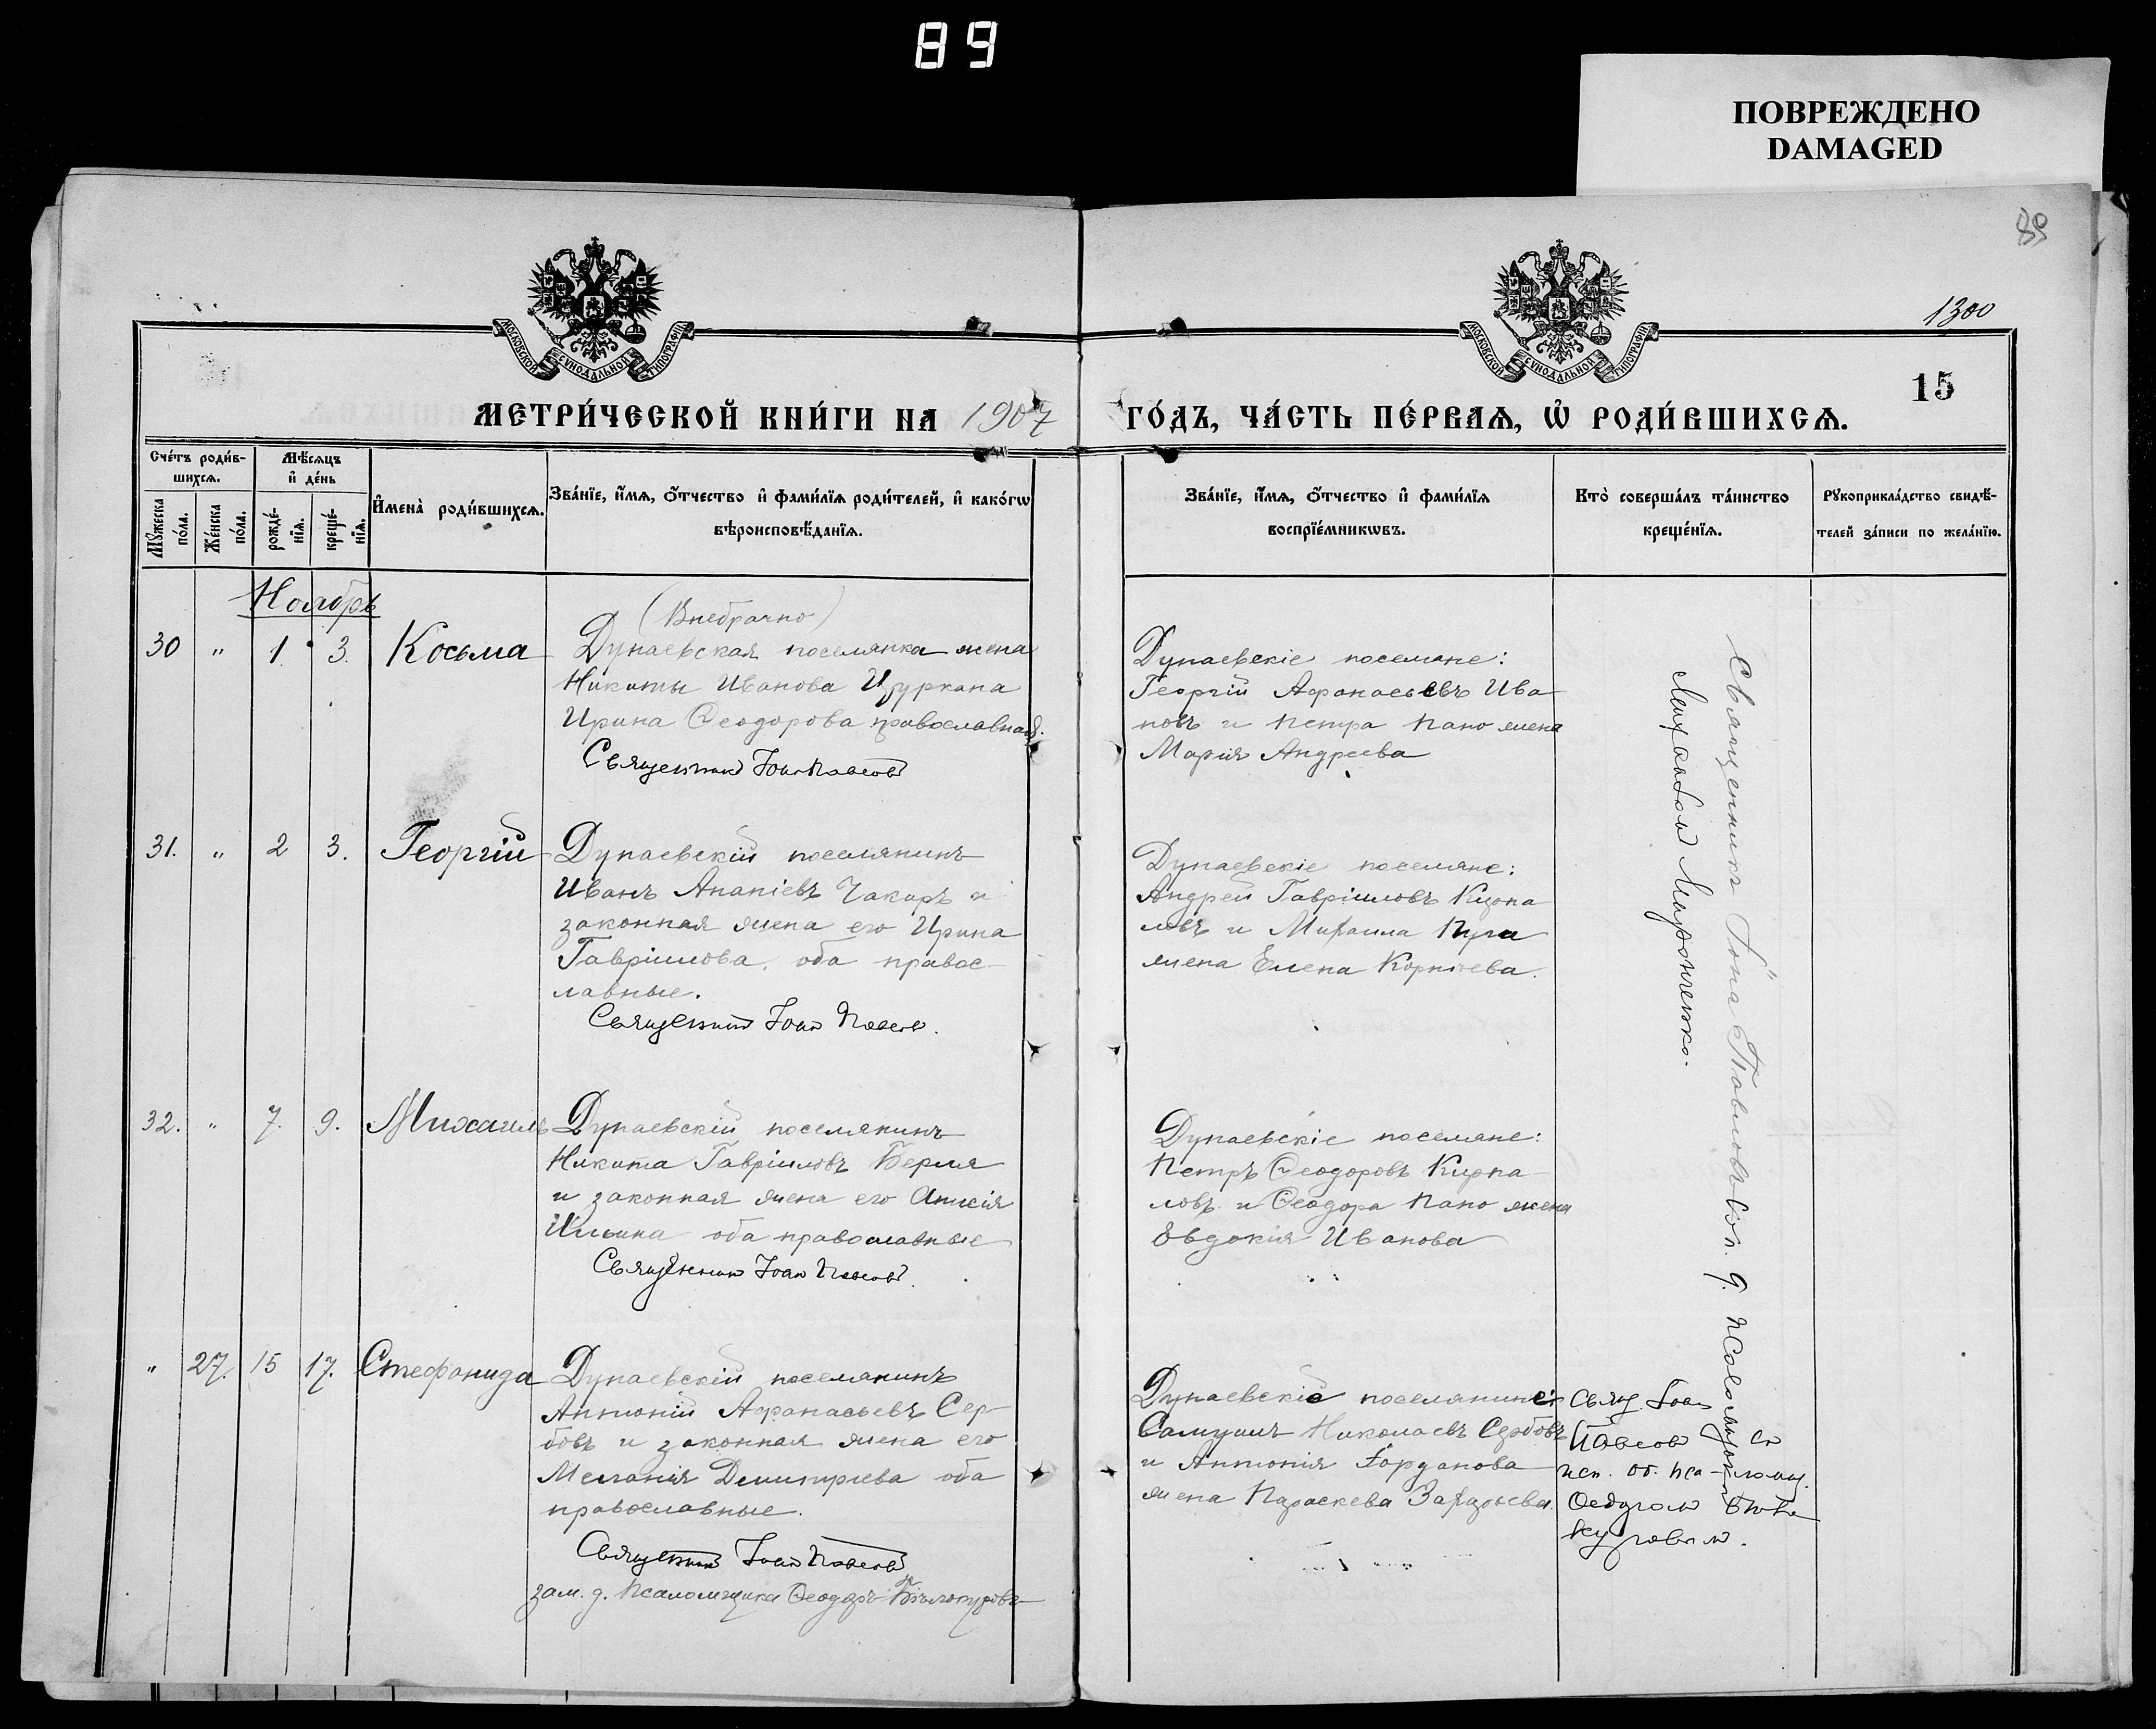 89
ПОВРЕЖДЕНО
DAMAGED
89
1300
15
МОСКОВСКОЙ СУНОДАЛЬНОЙ ТИПОГРАФІИ
МОСКОВСКОЙ СУНОДАЛЬНОЙ ТИПОГРАФІИ
МЕТРИ́ЧЕСКОЙ КНИ́ГИ НА 1907 ГО́ДЪ, ЧА́СТЬ ПЕ́РВАѦ, Ѡ҆ РОДИ́ВШИХСѦ.
Сче́тъ роди́в-
шихсѧ.
Мѣ́сѧцъ
и҆ де́нь
Мꙋ́жеска
по́ла.
Же́нска
по́ла.
рожде́-
нїѧ.
креще́-
нїѧ.
И҆мена̀ роди́вшихсѧ.
Зва́нїе, и҆́мѧ, ѻ҆́тчество и҆ фами́лїѧ роди́телей, и҆ како́гѡ
вѣроисповѣ́данїѧ.
Зва́нїе, и҆́мѧ, ѻ҆́тчество и҆ фами́лїѧ
воспрїе́мникѡвъ.
Кто̀ соверша́лъ та́инство
креще́нїѧ.
Рꙋкоприкла́дство свидѣ́-
телей за́писи по жела́нїю.
Ноябрь
30 " 1. 3. Косьма
(Внебрачно)
Дунаевская поселянка жена
Никиты Иванова Цуркана
Ирина Ѳеодорова православная.
Священникъ Іоан Павловъ
Дунаевскіе поселяне:
Георгій Афанасьевъ Ива-
новъ и Петра Пано жена
Мария Андреева
31. " 2 3. Георгій
Дунаевскій поселянинъ
Иванъ Ананіевъ Чакиръ и
законная жена его Ирина
Гавріилова, оба правос-
лавные.
Священникъ Іоан Павловъ.
Дунаевскіе поселяне:
Андрей Гавріиловъ Кирна
ловъ и Михаила Пуга
жена Елена Корніева.
32. " 7. 9. Михаилъ
Дунаевскій поселянинъ
Никита Гавріиловъ Берля
и законная жена его Анисія
Ильина оба православные
Священникъ Іоан Павловъ.
Дунаевскіе поселяне:
Петръ Ѳеодоровъ Кирна-
ловъ и Ѳеодора Пано жена
Евдокия Иванова
" 27. 15 17. Стефанида
Дунаевскій поселянинъ
Антоній Афанасьевъ Сер-
бовъ и законная жена его
Мелания Димитриева оба
православные.
Священникъ Іоан Павловъ
зам. д. Псаломщика Ѳеодоръ Бѣлокуровъ
Дунаевскіе поселянинъ:
Самуилъ Николаевъ Сербовъ
и Антонія Іорданова
жена Параскева Захарьева.
Священникъ Іоанъ Павловъ со исп. д. псаломщика
Михаиломъ Миронченко.
Свящ. Іоан
Павлов со
исп. об. пса-ломщ.
Ѳедором Бѣло-
куровым.